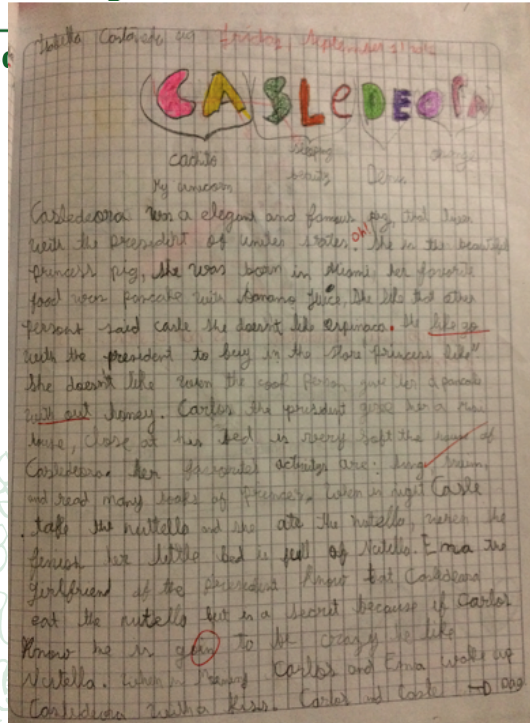 Friday, September
CASLEDEORA
cachito
My unicorn
sleeping
beauty
Casledeora was a elegant and famous pig, that lives
with the president of unites states. Oh! She is the beautiful
princess pig, she was born in Miami her favorite
food was pancake with banana juice. She like that other
persons said casle she doesn't like espinaco. She like go
with the president to buy in the store "Princess like"
She doesn't like when the cook person give her a pancake
with out honey. Carlos the president give her a
house, close at his bed is very soft the house of
Casledeora. her favorites activitys are: swim,
and read many books of Princess. When is night Casle
take the nuttella and she ate the nutella, when she
finish her little bed is full of Nutella. Ema the
girlfriend of the president know that Casledeora
eat the nutella but is a secret because if Carlos
know he is goin to be crazy he like
Nutella. When is Carlos and Ema wake up
Casledeora with a kiss. Carlos and Casle